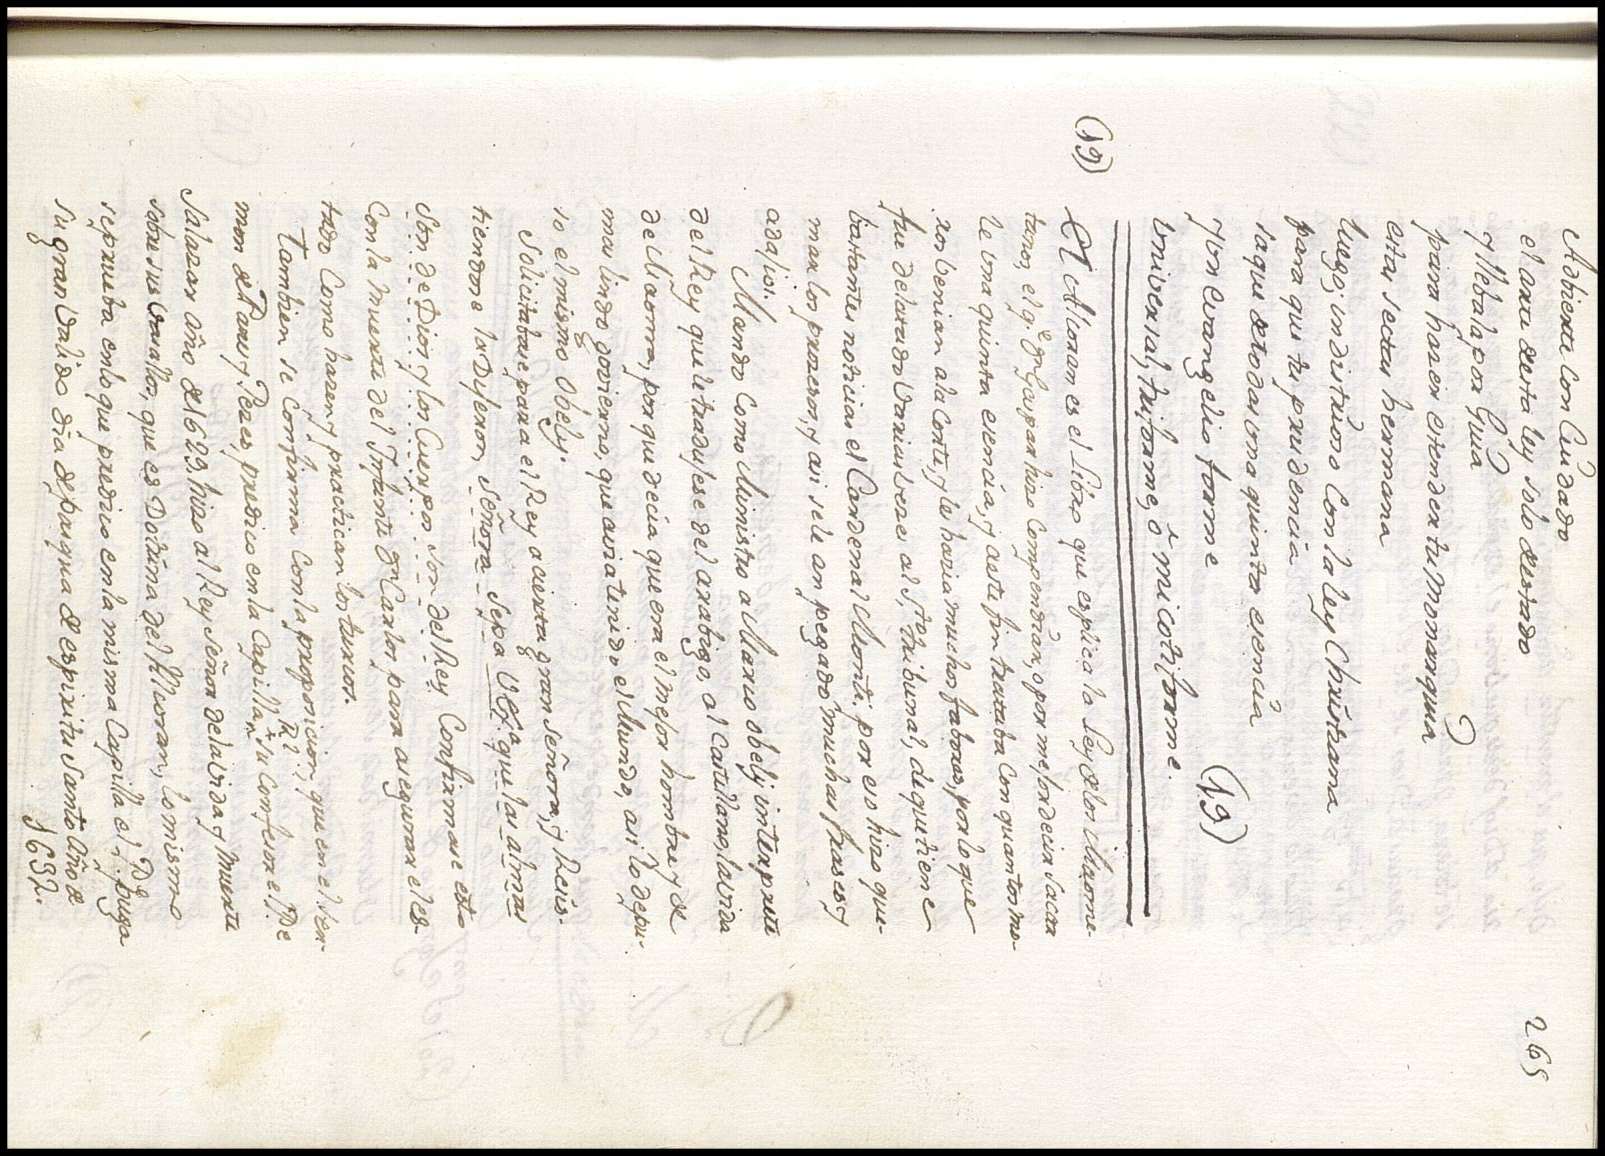 265
Adbierte con Cuidado
el arte desta ley solo desnudo
y llebala por Guia
para haçer esconder tu Monarquia
estas sectas hermana
luego, in distruo Con la ley Christiana
para que tu prudencia
saque de todas una quinta esencia
y un evangelio forme (19)
universal, triforme, ô micotiforme.
(19) El Alcoran es el Libro que esplica la Ley de los Maome-
tanos, el q.e Dn Gaspar hiso Compendiar, o por mejor decir sacar
le una quinta esencia, y a este fin trataba Con quantos mo-
ros benian a la Corte, y les hacia muchos fabores, por lo que
fue delatado Varias beces al Sto. tribunal, de que tiene
bastantes noticias el Cardenal Monti, por eso hiso que-
mar los procesos, y asi se le an pegado muchas frases y
adajios.
Mando Como Ministro a Mario obelj interprete
del Rey que le tradujese del arabigo, al Castellano, la vida
de Maoma, por que decia que era el mejor hombre, y de
mas lindo govierno, que avia tenido el Mundo, asi lo depu-
so el mismo Obelj.
Solicitabase para el Rey a cierta gran señora, y Resis-
tiendose la Dijeron, señora sepa V. Exa. que las almas
son de Dios y los Cuerpos son del Rey Confirmase esto
Con la Muerte del Infante Dn Carlos, para asegurarse les
tado Como hacen y practican los turcos.
Tambien se Confirma Con la proposicion, que en el Ser-
mon de Ramos y Peces, predico en la Capilla Rl. su Confesor el Pe
Salazar año de 1629, hiso al Rey Señor de la vida y Muerte
sobre sus Vasallos, que es Dotrina del Alcoran, lo mismo
se prueba en lo que predico en la misma Capilla el Pe. puga
su gran Valido dia de pasqua de espiritu santo Año de
1632.